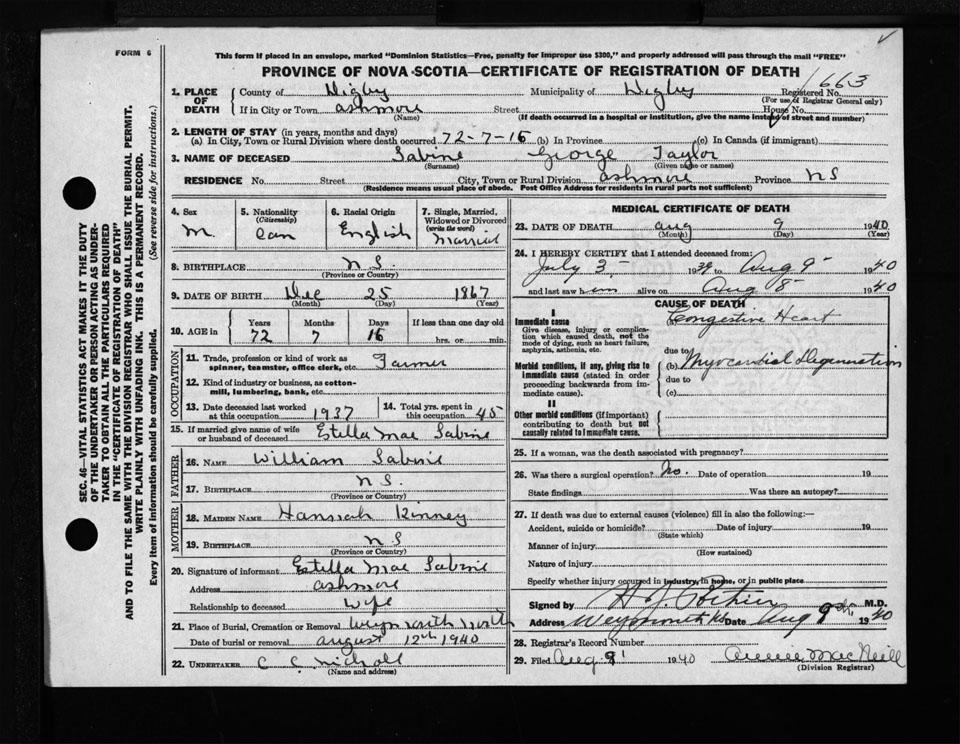 FORM 6
This form if placed in an envelope, marked "Dominion Statistics—Free, penalty for improper use $300," and properly addressed will pass through the mail "FREE"
PROVINCE OF NOVA SCOTIA—CERTIFICATE OF REGISTRATION OF DEATH
1663
1. PLACE OF DEATH
County of Digby Municipality of Digby Registered No.
(For use of Registrar General only)
If in City or Town ashmore Street House No.
(Name) (If death occurred in a hospital or institution, give the name instead of street and number)
2. LENGTH OF STAY (in years, months and days)
(a) In City, Town or Rural Division where death occurred 72-7-15 (b) In Province (c) In Canada (if immigrant)
3. NAME OF DECEASED Sabine George Taylor
(Surname) (Given name or names)
RESIDENCE No. Street City, Town or Rural Division ashmore Province NS
(Residence means usual place of abode. Post Office Address for residents in rural parts not sufficient)
4. Sex
M.
5. Nationality
(Citizenship)
Can
6. Racial Origin
English
7. Single, Married, Widowed or Divorced
(write the word)
Married
8. BIRTHPLACE N S.
(Province or Country)
9. DATE OF BIRTH Dec 25 1867
(Month) (Day) (Year)
10. AGE in
Years Months Days If less than one day old
72 7 15 hrs. or min.
OCCUPATION
11. Trade, profession or kind of work as spinner, teamster, office clerk, etc. Farmer
12. Kind of industry or business, as cotton-mill, lumbering, bank, etc.
13. Date deceased last worked at this occupation 1937
14. Total yrs. spent in this occupation 45
15. If married give name of wife or husband of deceased Estella Mae Sabine
FATHER
16. NAME William Sabine
17. BIRTHPLACE N S.
(Province or Country)
MOTHER
18. MAIDEN NAME Hannah Kinney
19. BIRTHPLACE N S
(Province or Country)
20. Signature of informant Estella Mae Sabine
Address ashmore
Relationship to deceased Wife
21. Place of Burial, Cremation or Removal Weymouth North
Date of burial or removal august 12th 1940
22. UNDERTAKER C C Nicholl
(Name and address)
MEDICAL CERTIFICATE OF DEATH
23. DATE OF DEATH aug 9 1940
(Month) (Day) (Year)
24. I HEREBY CERTIFY that I attended deceased from:
July 3 1939 to Aug 9 1940
and last saw him alive on Aug 8 1940
CAUSE OF DEATH
I
Immediate cause
Give disease, injury or complication which caused death, not the mode of dying, such as heart failure, asphyxia, asthenia, etc.
Congestive Heart
due to
Morbid conditions, if any, giving rise to immediate cause (stated in order proceeding backwards from immediate cause)
(b) Myocardial Degeneration
due to
(c)
II
Other morbid conditions (if important) contributing to death but not causally related to immediate cause.
25. If a woman, was the death associated with pregnancy?
26. Was there a surgical operation? No. Date of operation 19
State findings Was there an autopsy?
27. If death was due to external causes (violence) fill in also the following:—
Accident, suicide or homicide? Date of injury 19
(State which)
Manner of injury
(How sustained)
Nature of injury
Specify whether injury occurred in industry, in home, or in public place
Signed by M.D.
Address Weymouth NS Date Aug 9th 1940
28. Registrar's Record Number
29. Filed Aug 9 1940 Annie MacNeill
(Division Registrar)
SEC. 46—VITAL STATISTICS ACT MAKES IT THE DUTY
OF THE UNDERTAKER OR PERSON ACTING AS UNDER-
TAKER TO OBTAIN ALL THE PARTICULARS REQUIRED
IN THE "CERTIFICATE OF REGISTRATION OF DEATH"
AND TO FILE THE SAME WITH THE DIVISION REGISTRAR WHO SHALL ISSUE THE BURIAL PERMIT.
WRITE PLAINLY WITH UNFADING INK. THIS IS A PERMANENT RECORD.
Every item of information should be carefully supplied. (See reverse side for instructions.)